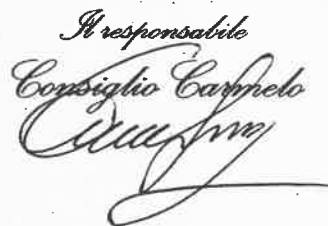 Il responsabile
Consiglio Carmelo